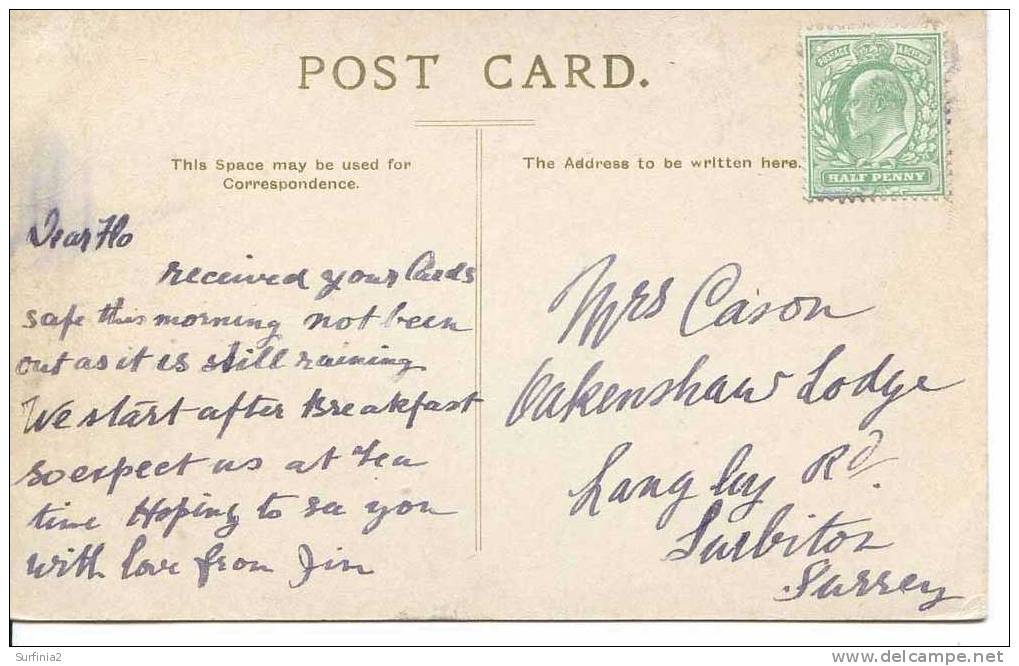 POST CARD.
This Space may be used for
Correspondence.
The Address to be written here.
POSTAGE REVENUE
HALF PENNY
Dear Flo
received your Cards
safe this morning not been
out as it is still raining
We start after Breakfast
so expect us at Tea
time Hoping to see you
with love from Jim
Mrs Cason
Oakenshaw Lodge
Langley Rd.
Surbiton
Surrey
Surfinia2
www.delcampe.net